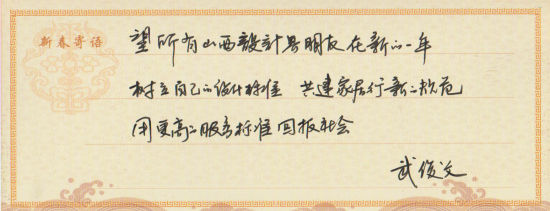 新春寄语
望所有山西设计界朋友在新的一年
树立自己的设计标准 共建家居行业新规范
用更高的服务标准回报社会
武俊文